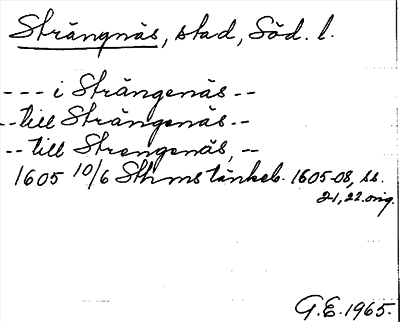 Strängnäs, stad, Söd. l.
--- i Strängenäs --
-- till Strängenäs --
-- till Strengenäs, --
1605 10/6 Sthms tänkeb. 1605-08, ss.
21, 22. orig.
G.E. 1965.